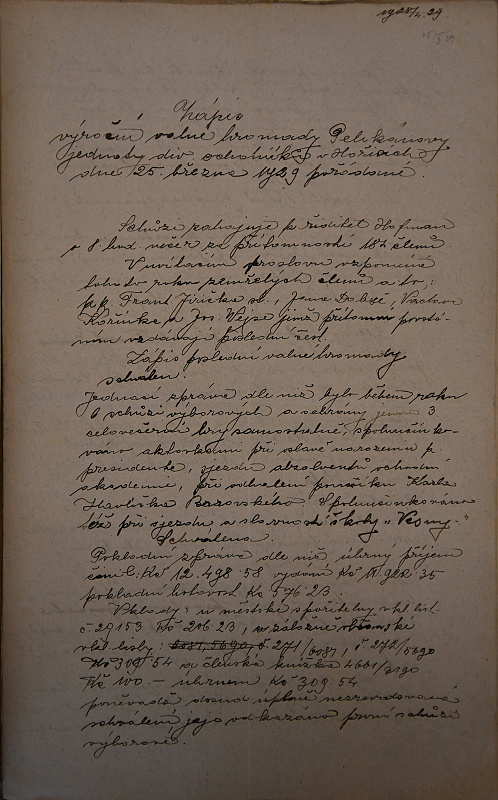 Zápis
výroční valné hromady Pelikánovy
jednoty div. ochotníků v Hořicích
dne 25. března 1929 pořádané.
Schůzi zahajuje p. ředitel Hofman
o 8. hod. večer za přítomnosti 18ti členů.
V uvítacím proslovu vzpomíná
tohoto roku zemřelých členů a to:
pp. Frant. Jiřička st., Jana , Václava
Kořínka a Jos. Wejse jimž přítomní povstá-
ním vzdávají poslední čest.
Zápis poslední valné hromady
schválen.
Jednací zpráva dle níž bylo během roku
6 schůzí výborových a sehrány jenom 3
celovečerní hry samostatné, spoluúčinko-
váno aktovkami při slavě narozenin p.
presidenta, sjezdu absolventů obchodní
akademie, při odhalení pomníku Karla
Havlíčka Borovského. Spoluúčinkováno
též při sjezdu a slavnosti školy „Vesny."
Schválena.
Pokladní zpráva dle níž úhrný příjem
činil: Kč 12.498.58 vydání Kč 11.922.35
pokladní hotovost Kč 576.23.
Vklady: u městské spořitelny vkl. list.
č 29153 Kč 206.23, u záložně
vkl. listy: č 271/6087, č 272/5690
Kč 309.54 a členská knížka 4601/3190
Kč 100.– úhrnem Kč 309.54
poněvadž dosud úplně nezrevidovaná
schválení její odkázáno první schůzi
výborové.